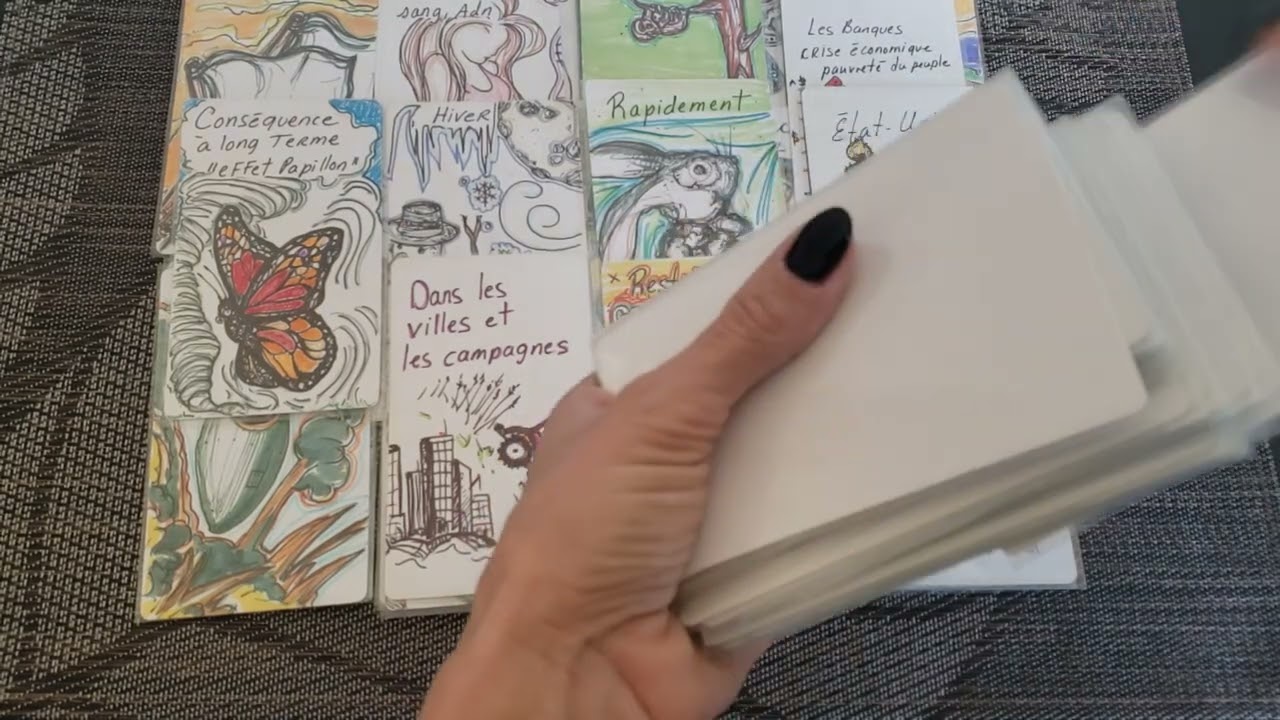 sang, Adn
Les Banques
CRISE économique
pauvreté du peuple
Conséquence
à long Terme
"eFFet Papillon"
Hiver
Rapidement
État-U
Dans les
villes et
les campagnes